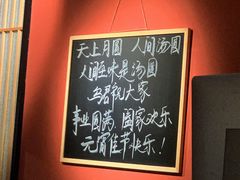 天上月圆 人间汤圆
人间至味是汤圆
乌君祝大家
事业圆满、阖家欢乐
元宵佳节快乐！